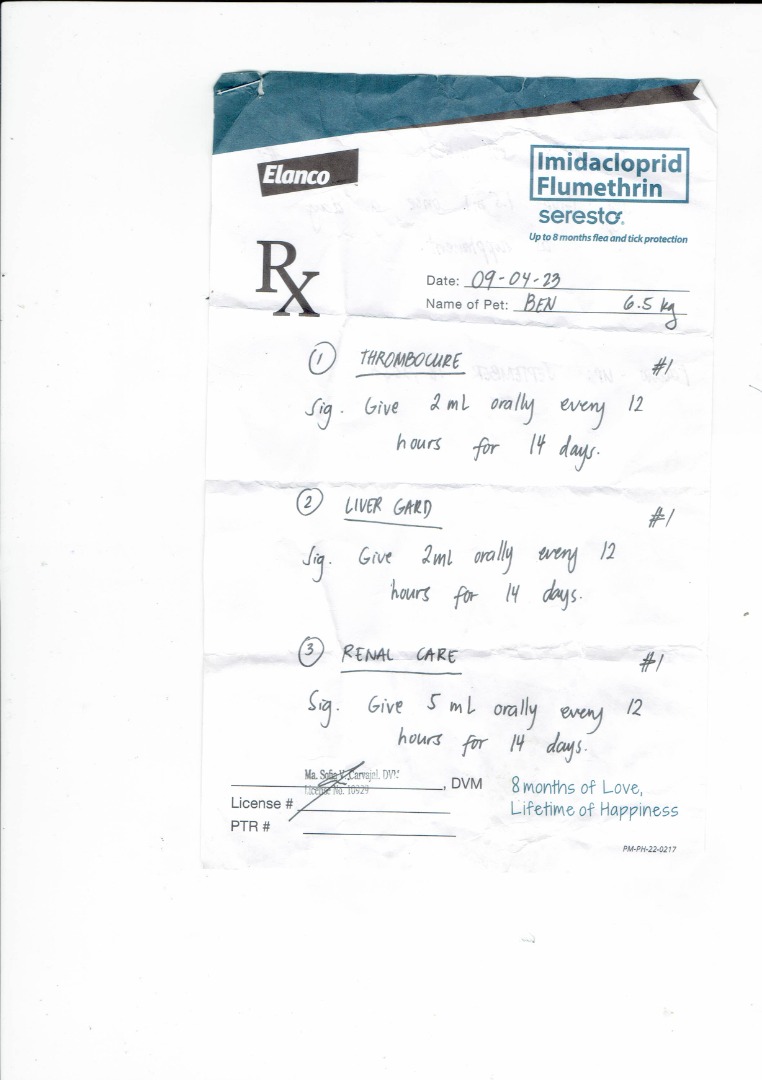 Elanco
Imidacloprid
Flumethrin
seresto®
Up to 8 months flea and tick protection
Rx
Date: 09-04-23
Name of Pet: BEN 6.5 kg
1 THROMBOCURE #1
Sig. Give 2 mL orally every 12
hours for 14 days.
2 LIVER GARD #1
Sig. Give 2 mL orally every 12
hours for 14 days.
3 RENAL CARE #1
Sig. Give 5 mL orally every 12
hours for 14 days.
Ma. Sofia V. Carvajal, DVM
License No. 10929
, DVM
License #
PTR #
8 months of Love,
Lifetime of Happiness
PM-PH-22-0217